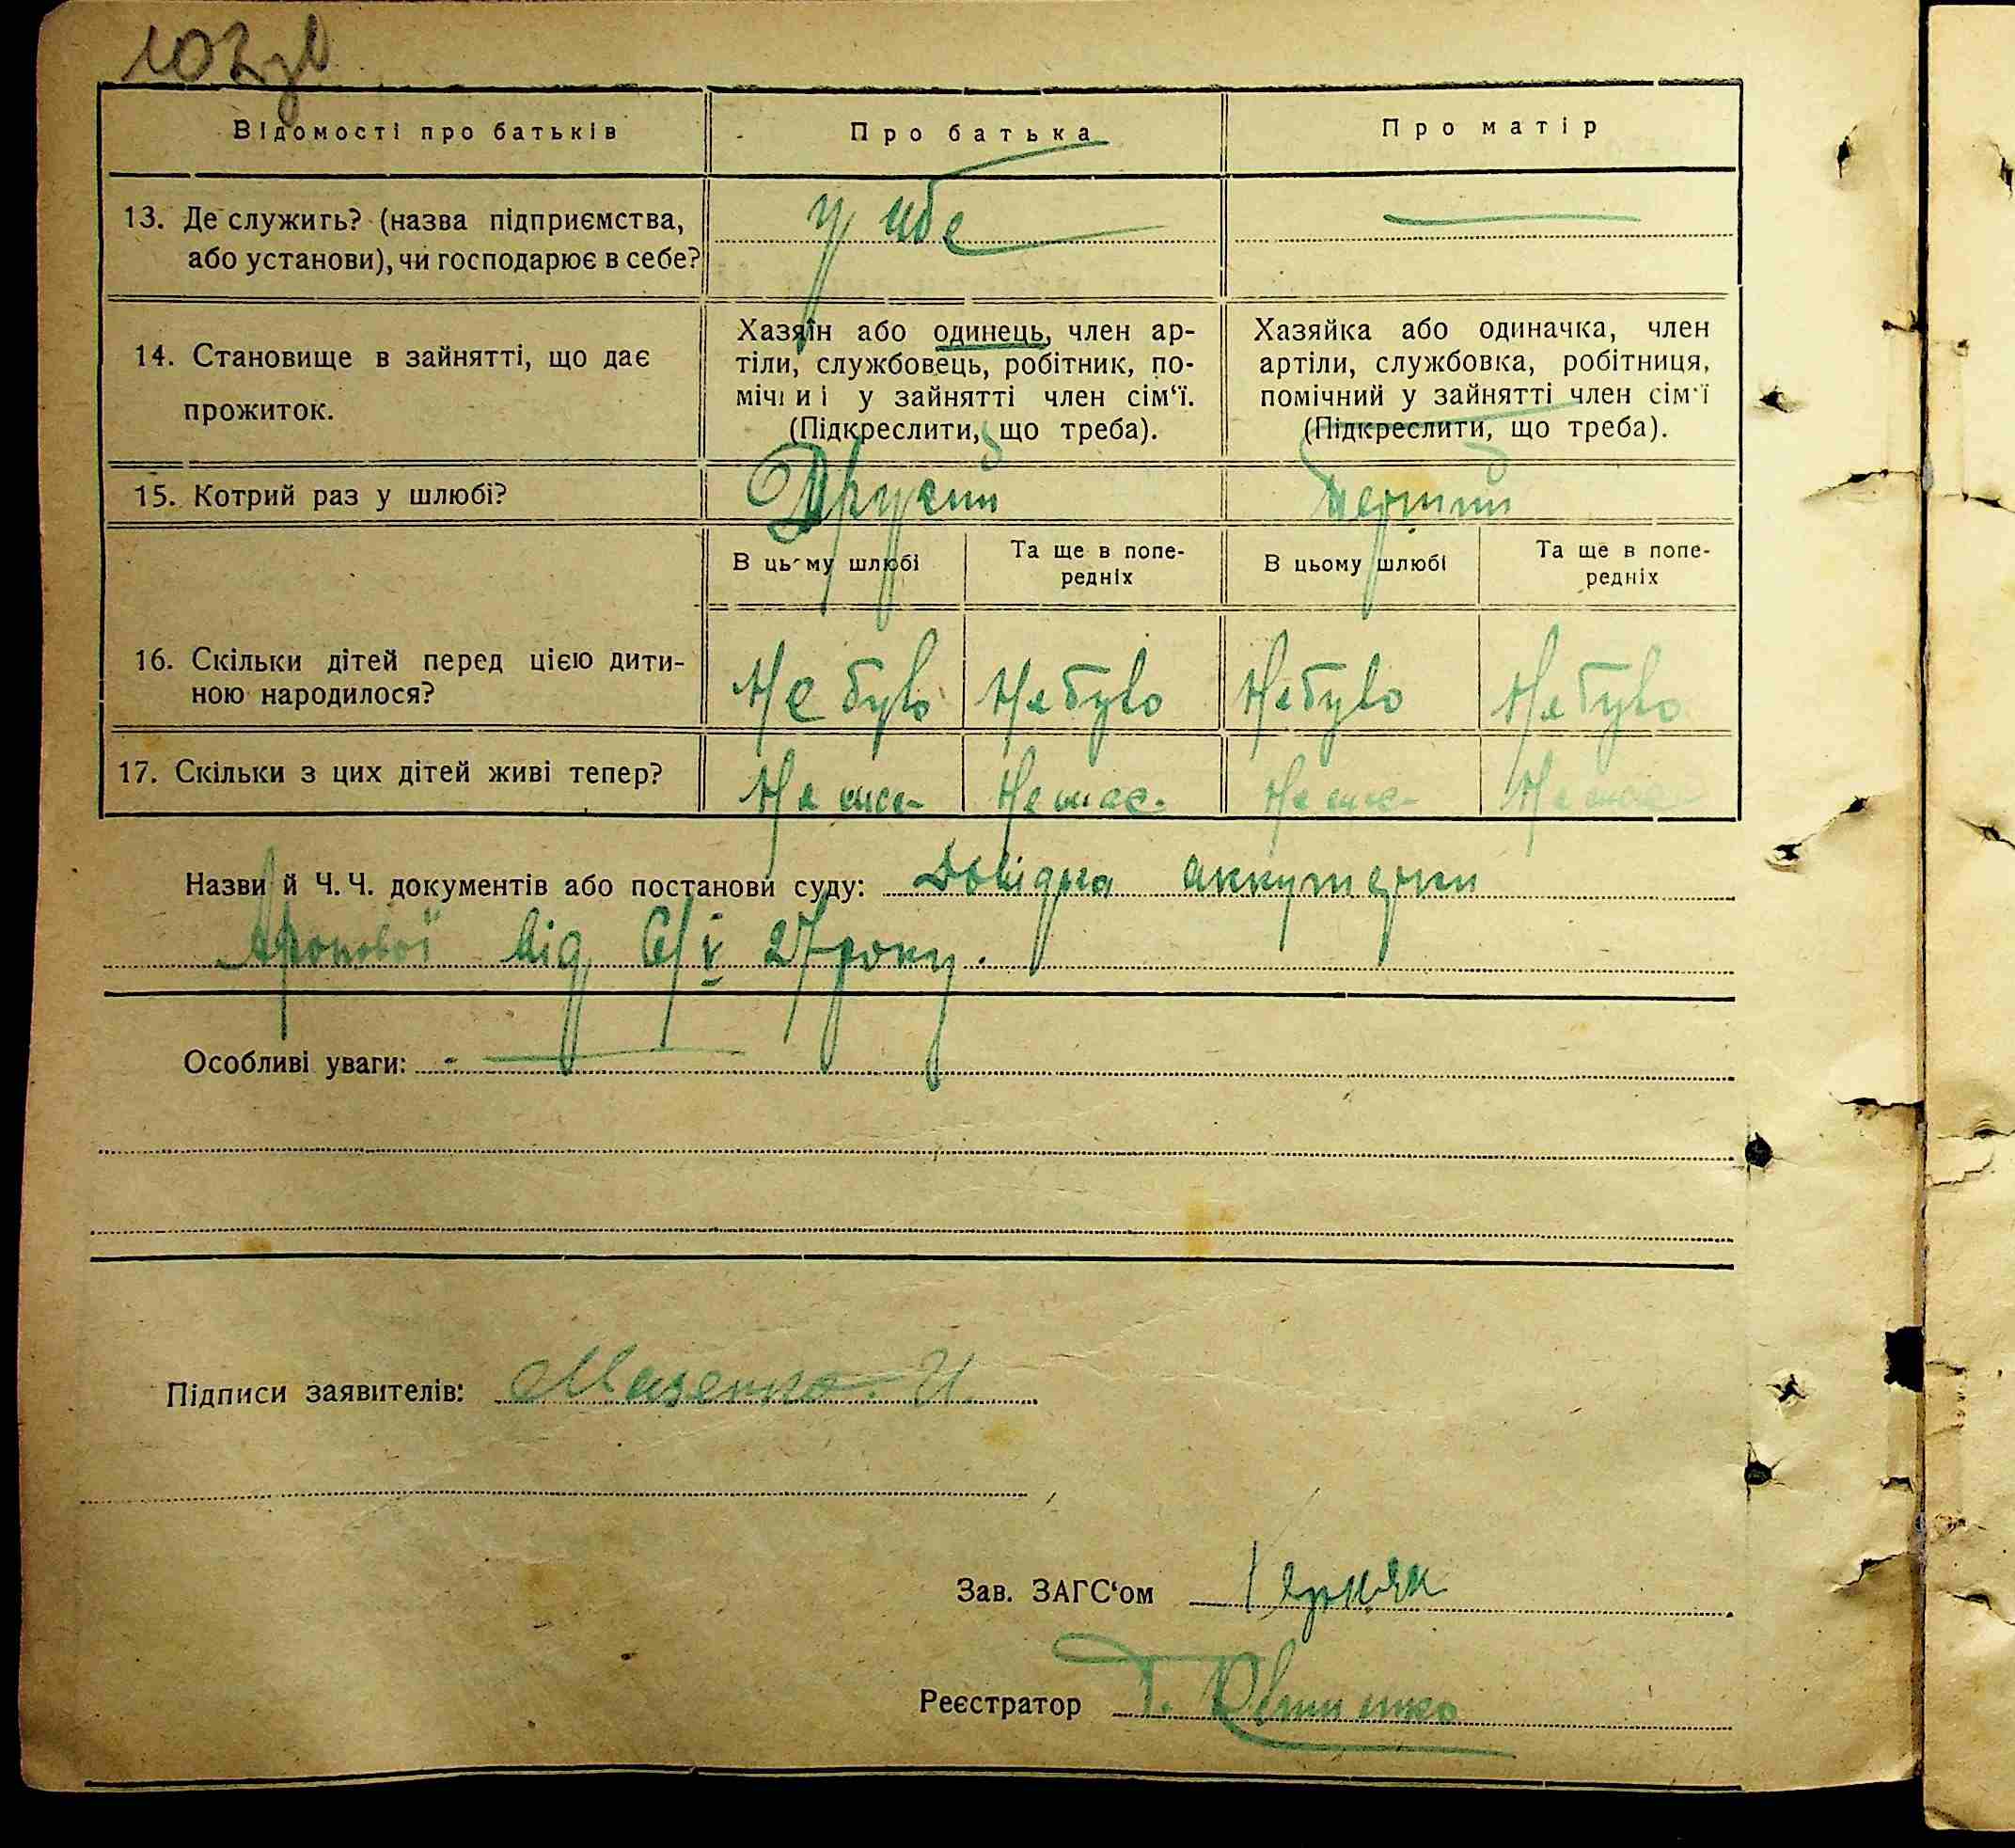 103зв
Відомості про батьків
Про батька
Про матір
13. Де служить? (назва підприємства,
або установи), чи господарює в себе?
у себе
14. Становище в зайнятті, що дає
прожиток.
Хазяїн або одинець, член ар-
тіли, службовець, робітник, по-
мічний у зайнятті член сім'ї.
(Підкреслити, що треба).
Хазяйка або одиначка, член
артіли, службовка, робітниця,
помічний у зайнятті член сім'ї
(Підкреслити, що треба).
15. Котрий раз у шлюбі?
Другий
Перший
В цьому шлюбі
Та ще в попе-
редніх
В цьому шлюбі
Та ще в попе-
редніх
16. Скільки дітей перед цією дити-
ною народилося?
Не було
Не було
Не було
Не було
17. Скільки з цих дітей живі тепер?
Немає
Немає
Немає
Немає
Назви й Ч.Ч. документів або постанови суду: Довідка аккушерки
від 6/V 27 року.
Особливі уваги:
Підписи заявителів:
Зав. ЗАГС'ом
Реєстратор